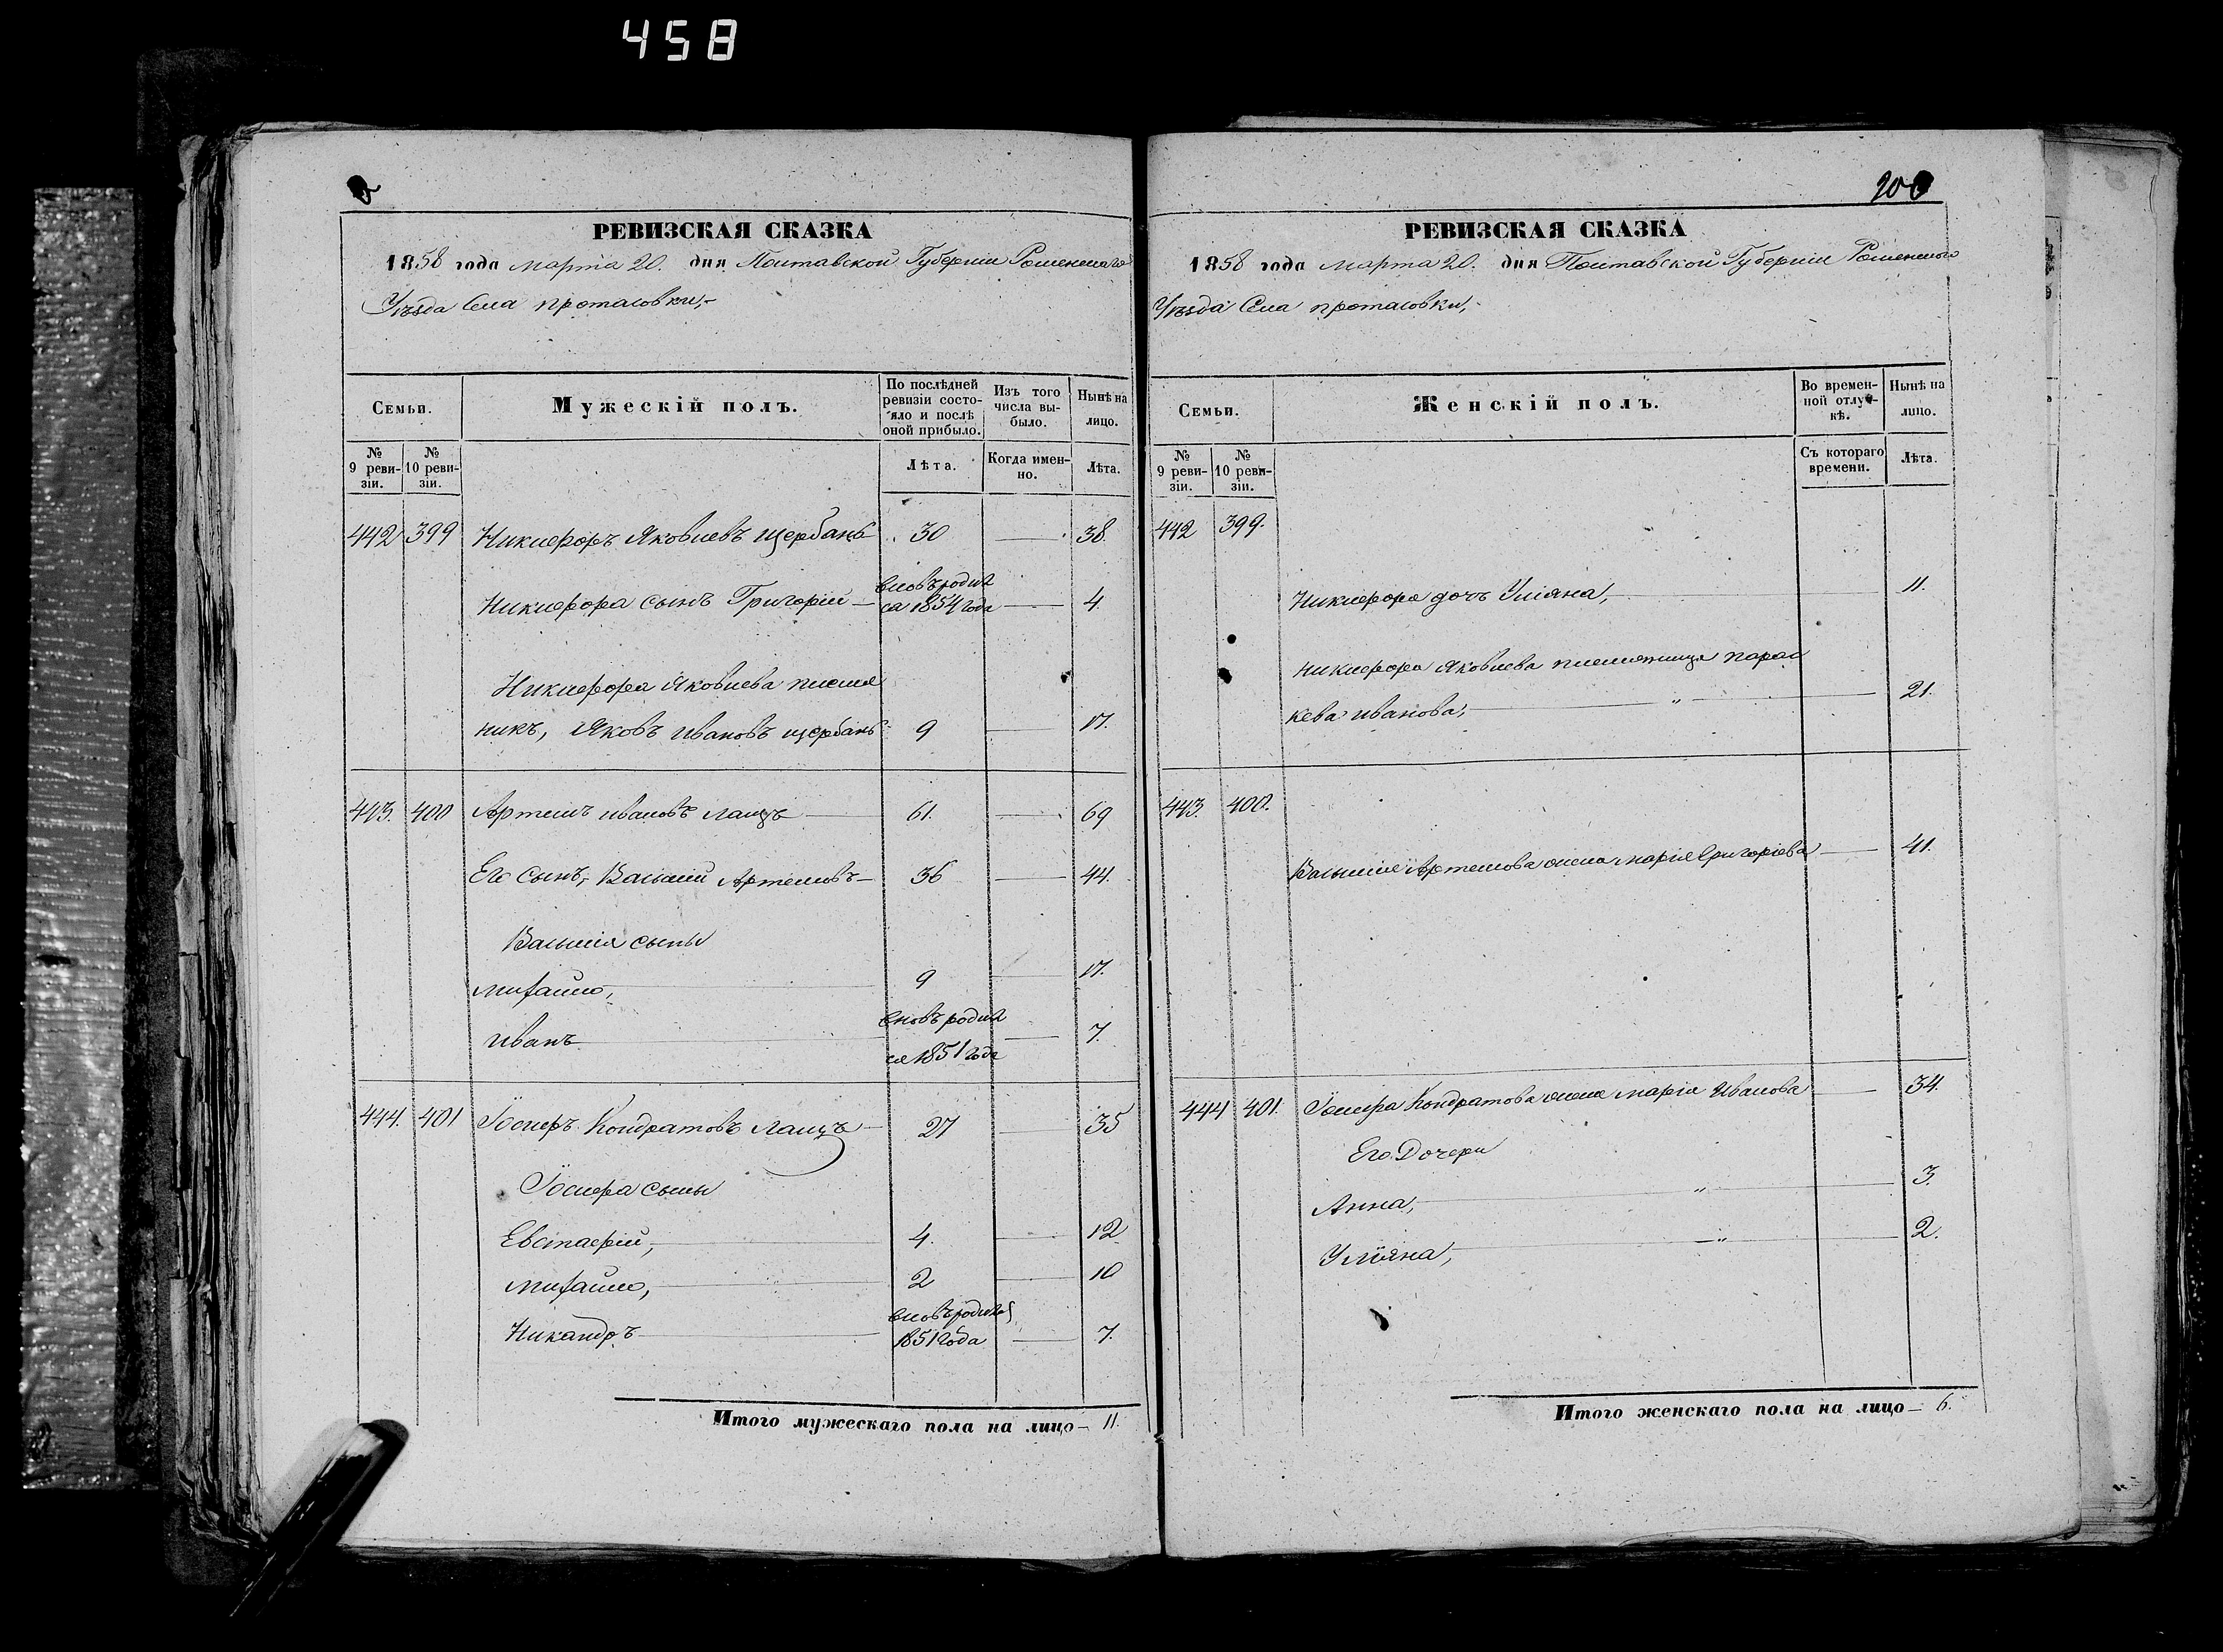 458
РЕВИЗСКАЯ СКАЗКА
1858 года марта 20. дня Полтавской Губернии Роменскаго
Уѣзда Села протасовки,
Семьи.
Мужескій полъ.
По послѣдней ревизіи состояло и послѣ оной прибыло.
Изъ того числа выбыло.
Нынѣ на лицо.
№ 9 ревизіи.
№ 10 ревизіи.
Лѣта.
Когда именно.
Лѣта.
442 399 Никифоръ Яковлевъ щербань 30 — 38.
Никифора сынъ Григорій — вновь родил
ся 1854 года — 4
Никифора Яковлева племя
никъ, Яковъ ивановъ щербань 9 — 17.
443. 400 Артемъ ивановъ 61. — 69
Его сынъ, Василій Артемовъ — 36 — 44.
Василія сыны
михайло, 9 — 17.
иванъ вновь родил — 7.
ся 1851 года
444. 401 Іосифъ Кондратовъ 27 — 35
Іосифа сыны
Евстафій, 4. — 12
михайло, 2 — 10
Никандръ вновь родился
1851 года — 7.
Итого мужескаго пола на лицо — 11.
200
РЕВИЗСКАЯ СКАЗКА
1858 года марта 20. дня Полтавской Губерніи Роменского
Уѣзда Села протасовки,
Семьи.
Женскій полъ.
Во временной отлучкѣ.
Нынѣ на лицо.
№ 9 ревизіи.
№ 10 ревизіи.
Съ котораго времени.
Лѣта.
442 399.
Никифора дочь Уліяна, — 11.
никифора Яковлева племянница парас
кева иванова, — " — 21.
443. 400.
Василія Артемова жена марія Григоріева — 41.
444 401. Іосифа Кондратова жена марія Иванова — 34.
Его Дочери
Анна, — " — 3.
Уліяна, — " — 2.
Итого женскаго пола на лицо — 6.